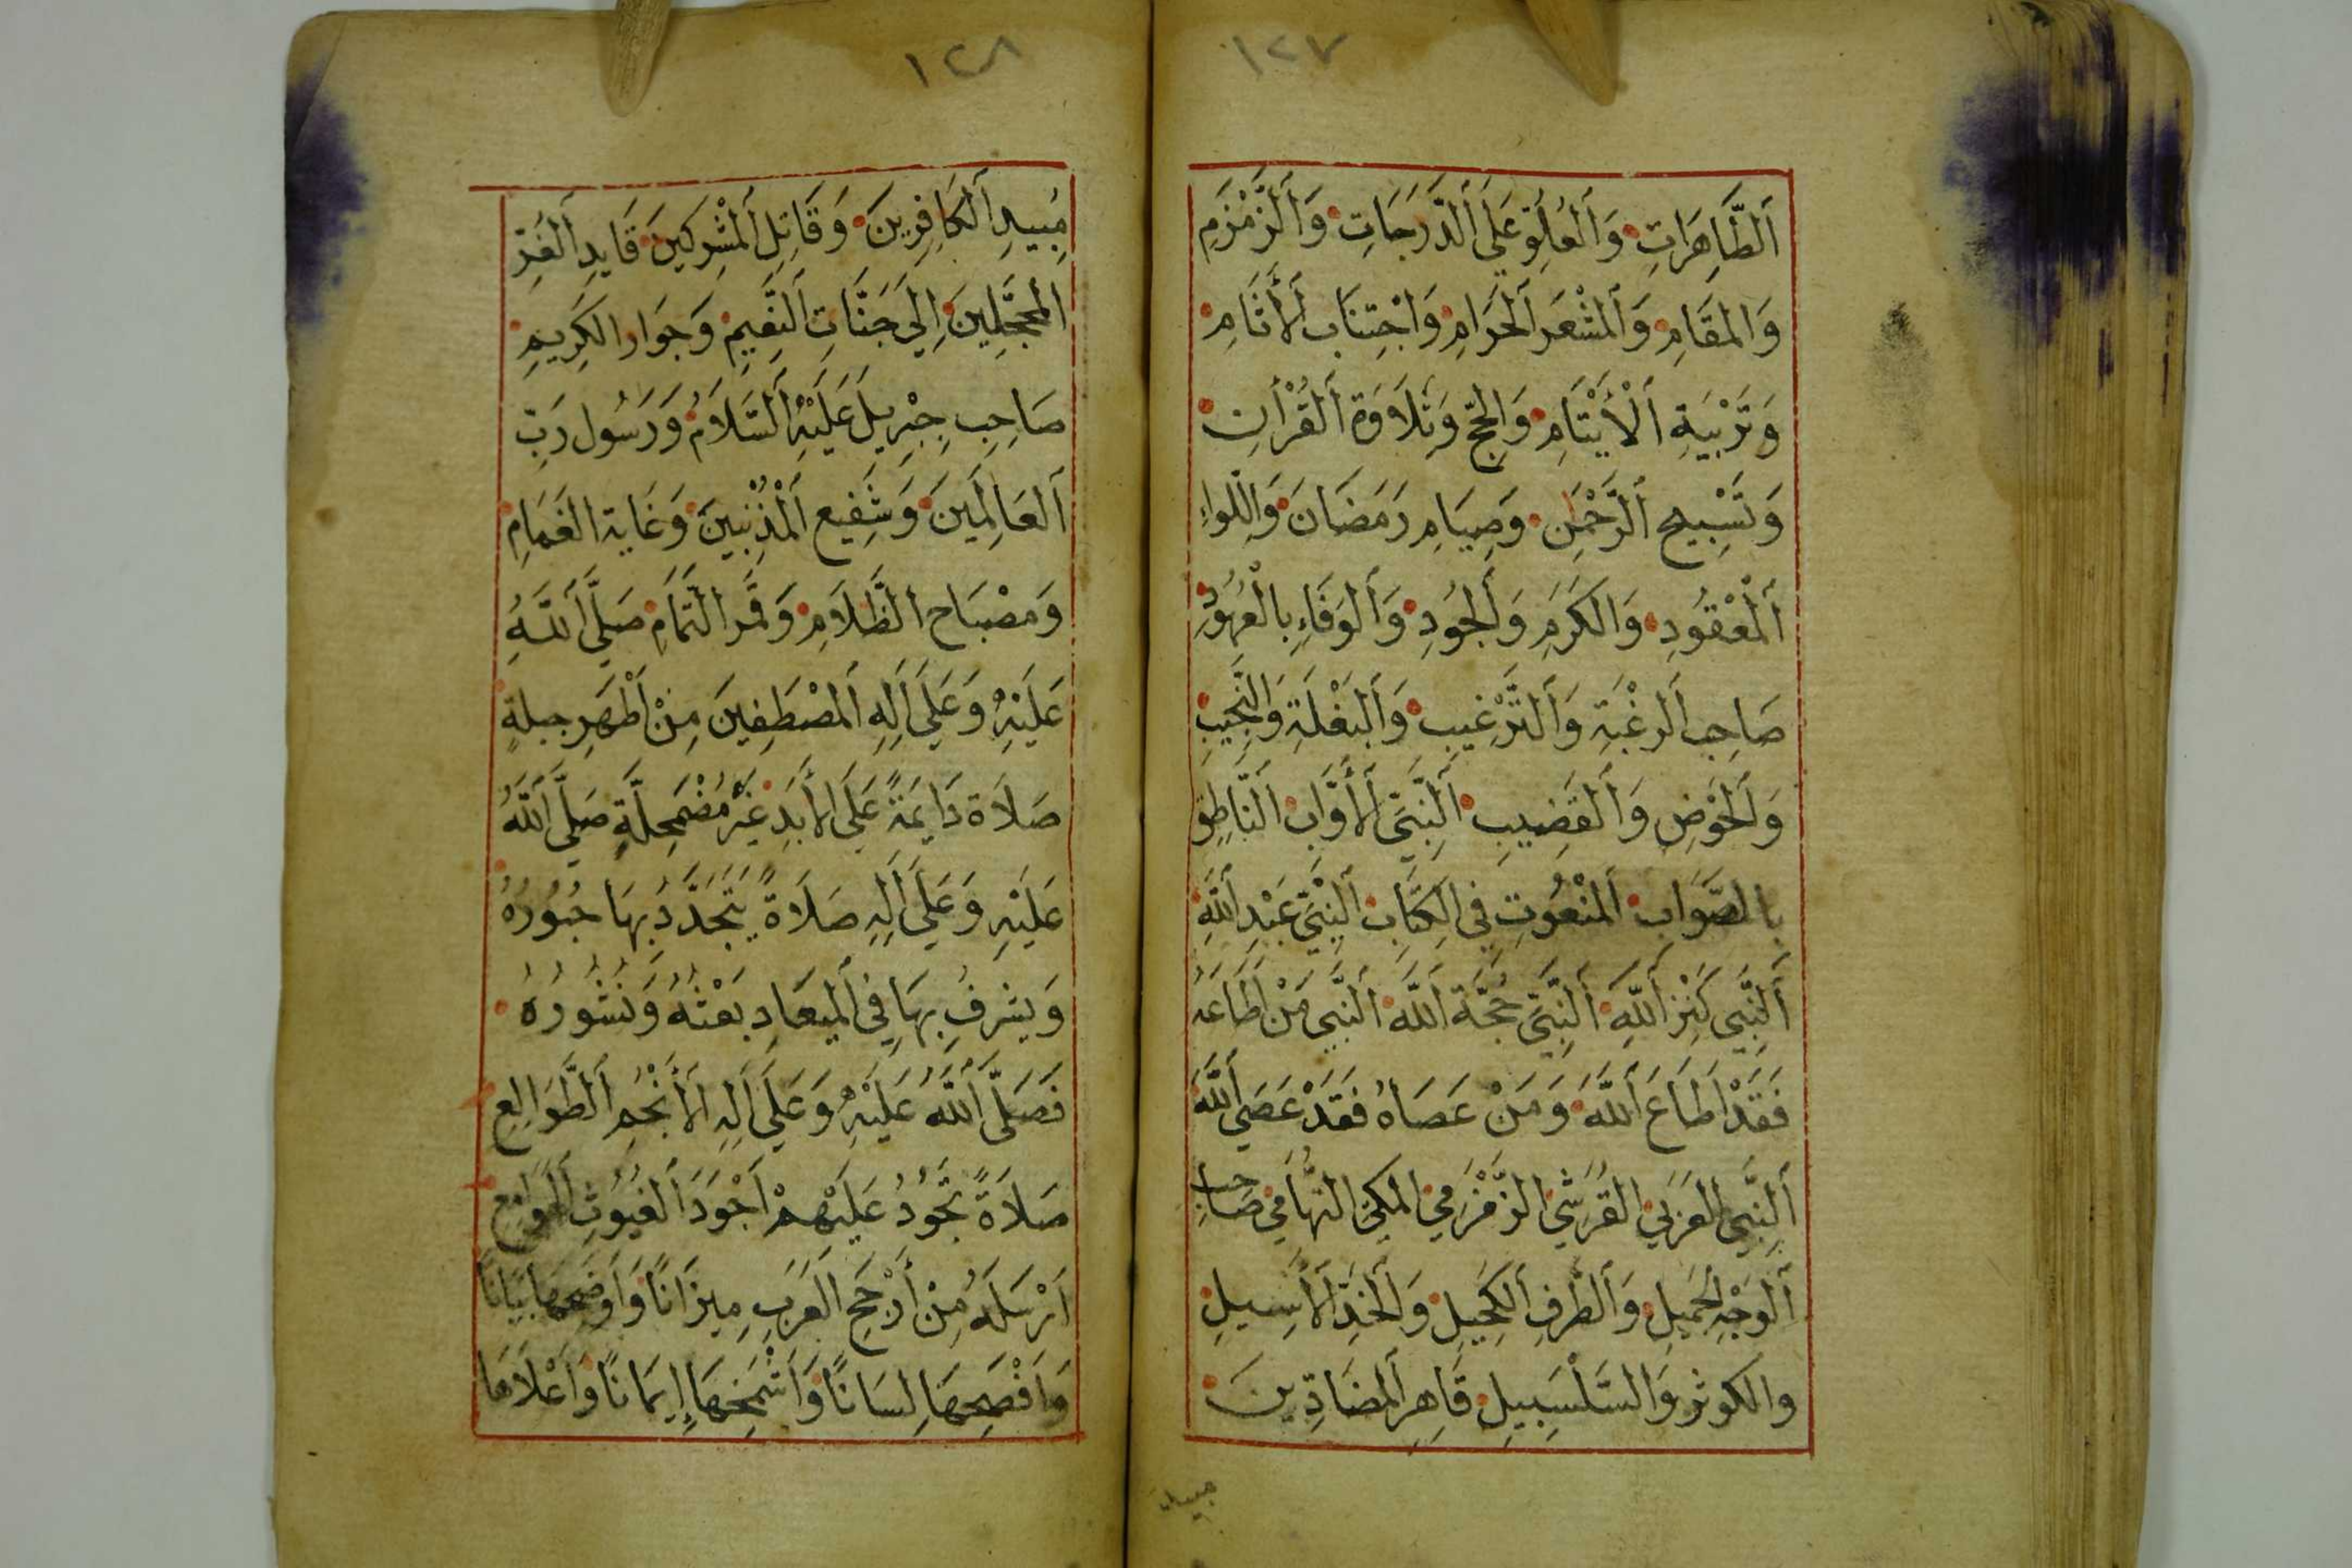 ١٢٧
اَلطَّاهِرَاتِ وَاَلْعُلُوِّ عَلَى اَلدَّرَجَاتِ وَاَلزَّمْزَمِ
وَالْمَقَامِ وَاَلْمَشْعَرِ اَلْحَرَامِ وَاجْتِنَابِ اَلْأَثَامِ
وَتَرْبِيَةِ اَلْأَيْتَامِ وَالْحَجِّ وَتِلَاوَةِ اَلْقُرْأَنِ
وَتَسْبِيحِ اَلرَّحْمَنِ وَصِيَامِ رَمَضَانَ وَاللِّوَاءِ
اَلْمَعْقُودِ وَالْكَرَمِ وَاَلْجُودِ وَاَلْوَفَاءِ بِالْعُهُودِ
صَاحِبِ اَلرَّغْبَةِ وَاَلتَّرْغِيبِ وَاَلْبَغْلَةِ وَالنَّجِيبِ
وَاَلْحَوْضِ وَاَلْقَضِيبِ اَلنَّبِيِّ اَلْأَوَّابِ اَلنَّاطِقِ
بِالصَّوَابِ اَلْمَنْعُوتِ فِي الْكِتَابِ اَلنَّبِيِّ عَبْدِ اَللَّهِ
اَلنَّبِيِّ كَنْزِ اَللَّهِ اَلنَّبِيِّ حُجَّةِ اَللَّهِ اَلنَّبِيِّ مَنْ اَطَاعَهُ
فَقَدْ اَطَاعَ اَللَّهَ وَمَنْ عَصَاهُ فَقَدْ عَصَى اَللَّهَ
اَلنَّبِيِّ الْعَرَبِيِّ الْقُرَشِيِّ الزَّمْزَمِيِّ الْمَكِّيِّ التِّهَامِيِّ صَاحِبِ
اَلْوَجْهِ الْجَمِيلِ وَاَلطَّرْفِ اَلْكَحِيلِ وَاَلْخَدِّ اَلْأَسِيلِ
والكوثر وَالسَّلْسَبِيلِ قَاهِرِ اَلْمُضَادِّينَ
مبيد
١٢٨
مُبِيدِ اَلْكَافِرِينَ وَقَاتِلِ اَلْمُشْرِكِينَ قَايِدِ اَلْغُرِّ
الْمُحَجَّلِينَ اِلَى جَنَّاتِ اَلنَّعِيمِ وَجِوَارِ الْكَرِيمِ
صَاحِبِ جِبْرِيلَ عَلَيْهِ اَلسَّلَامُ وَرَسُولِ رَبِّ
اَلْعَالَمِينَ وَشَفِيعِ اَلْمُذْنِبِينَ وَغَايَةِ الْغَمَامِ
وَمِصْبَاحِ الظَّلَامِ وَقَمَرِ التَّمَامِ صَلَّى اَللَّهُ
عَلَيْهِ وَعَلَى اَلِهِ اَلْمُصْطَفِينَ مِنْ اَطْهَرِ جِبِلَّةٍ
صَلَاةً دَايِمَةً عَلَى الْأَبَدِ غَيْرَ مُضْمَحِلَّةٍ صَلَّى اَللَّهُ
عَلَيْهِ وَعَلَى اَلِهِ صَلَاةً يَتَجَدَّدُ بِهَا حُبُورُهُ
وَيَشْرُفُ بِهَا فِي اَلْمِيعَادِ بَعْثُهُ وَنُشُورُهُ
فَصَلَّى اَللَّهُ عَلَيْهِ وَعَلَى اَلِهِ اَلْأَنْجُمِ اَلطَّوَالِعِ
صَلَاةً تَجُودُ عَلَيْهِمْ اَجْوَدَ اَلْغُيُوثِ اَلْهَوَامِعِ
اَرْسَلَهُ مِنْ أَرْجَحِ اَلْعَرَبِ مِيزَانًا وَاَوْضَحِهَا بَيَانًا
وَاَفْصَحِهَا لِسَانًا وَاَشْمَخِهَا إِيمَانًا وَاَعْلَاهَا